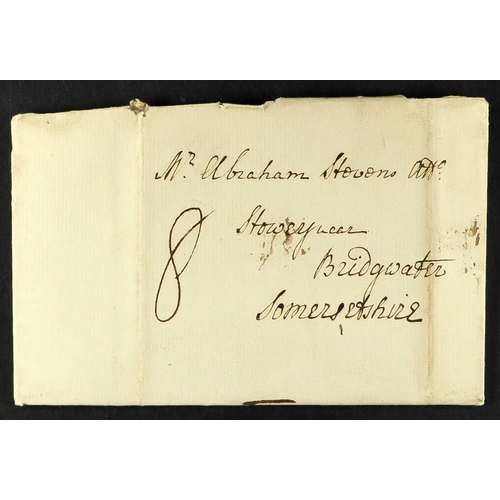 Mr Abraham Stevens Atto
Stowey near
8
Bridgwater
Somersetshire